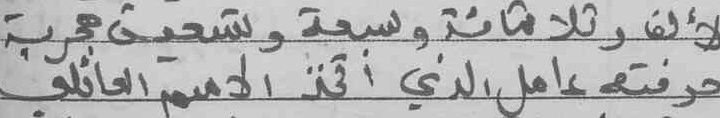 لألف وثلاثمائة وسبعة وتسعين هجرية
حرفته عامل الذي أتخذ الاسم العائلي